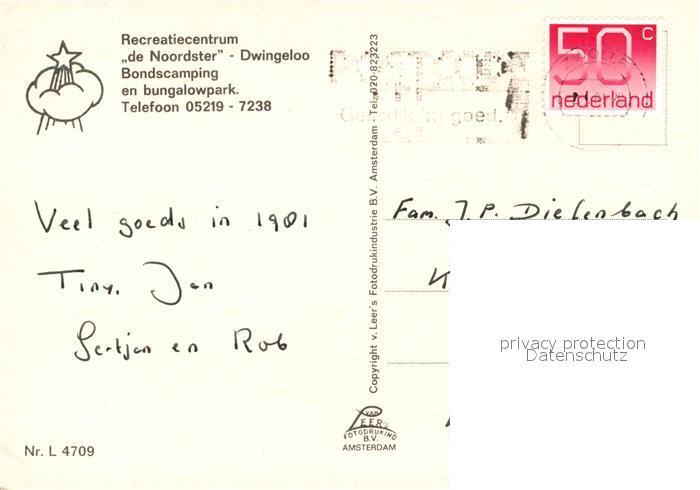 Recreatiecentrum
„de Noordster" - Dwingeloo
Bondscamping
en bungalowpark.
Telefoon 05219 - 7238
POSTCODE
Gebruik 'm goed.
50 c
nederland
Veel goeds in 1981
Tiny, Jan
Gertjan en Rob
Copyright v. Leer's Fotodrukindustrie B.V. Amsterdam - Tel. 020-823223
Fam. J.P. Diefenbach
privacy protection
Datenschutz
VAN
LEER's
FOTODRUKIND
B.V.
AMSTERDAM
Nr. L 4709